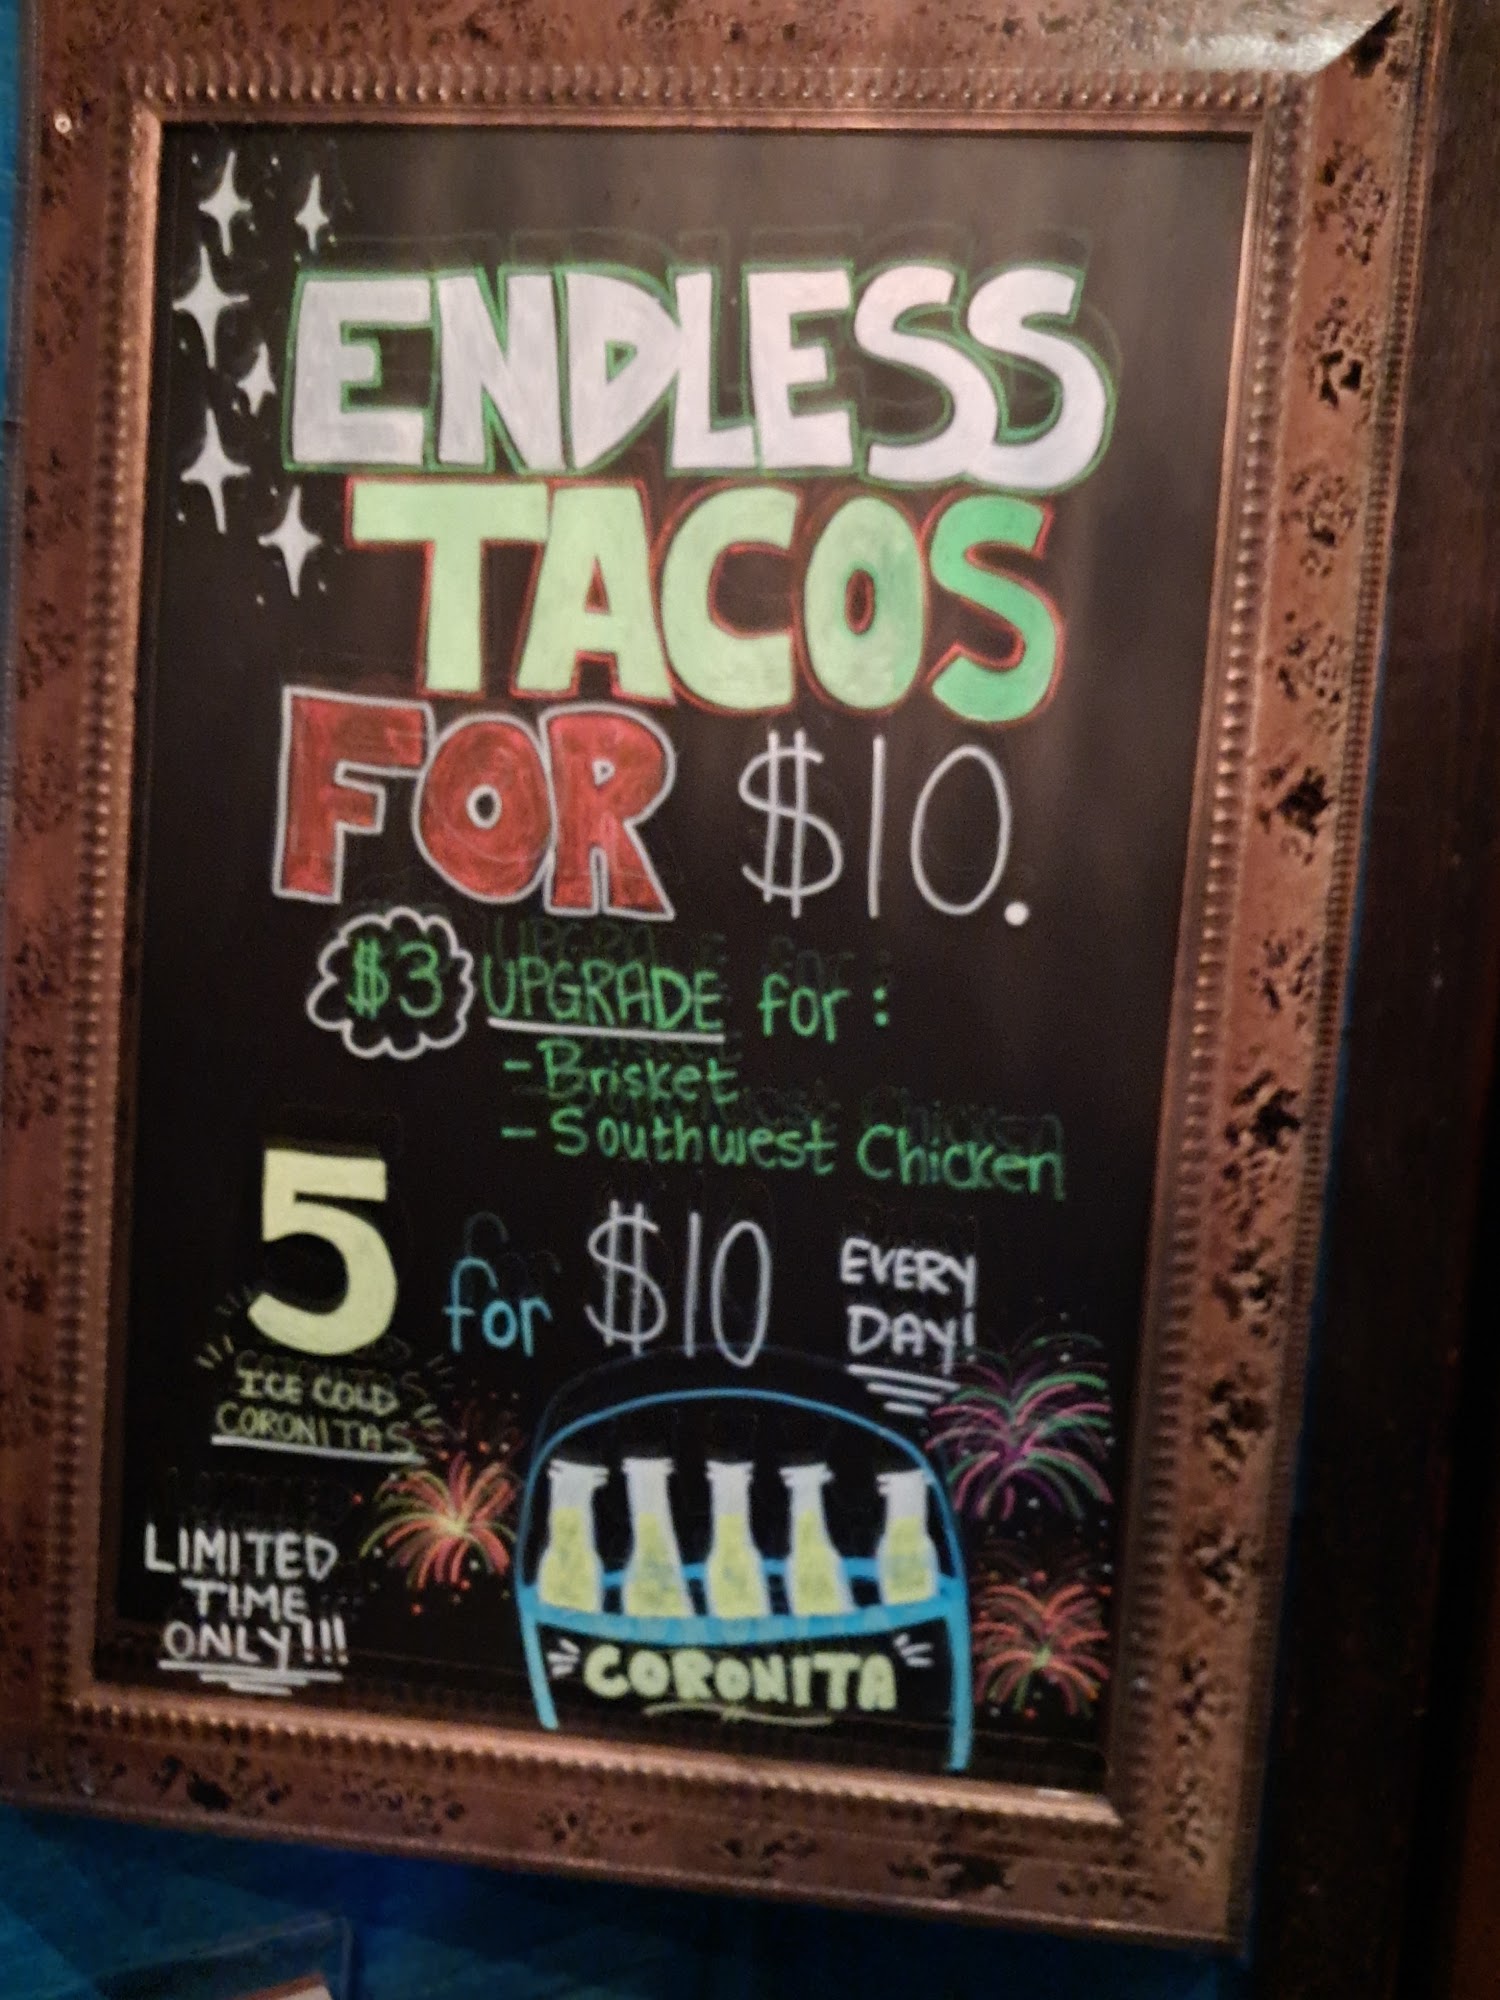 ENDLESS
TACOS
FOR $10.
$3 UPGRADE for:
- Brisket
- Southwest Chicken
5 for $10 EVERY
DAY!
ICE COLD
CORONITAS
LIMITED
TIME
ONLY!!!
CORONITA